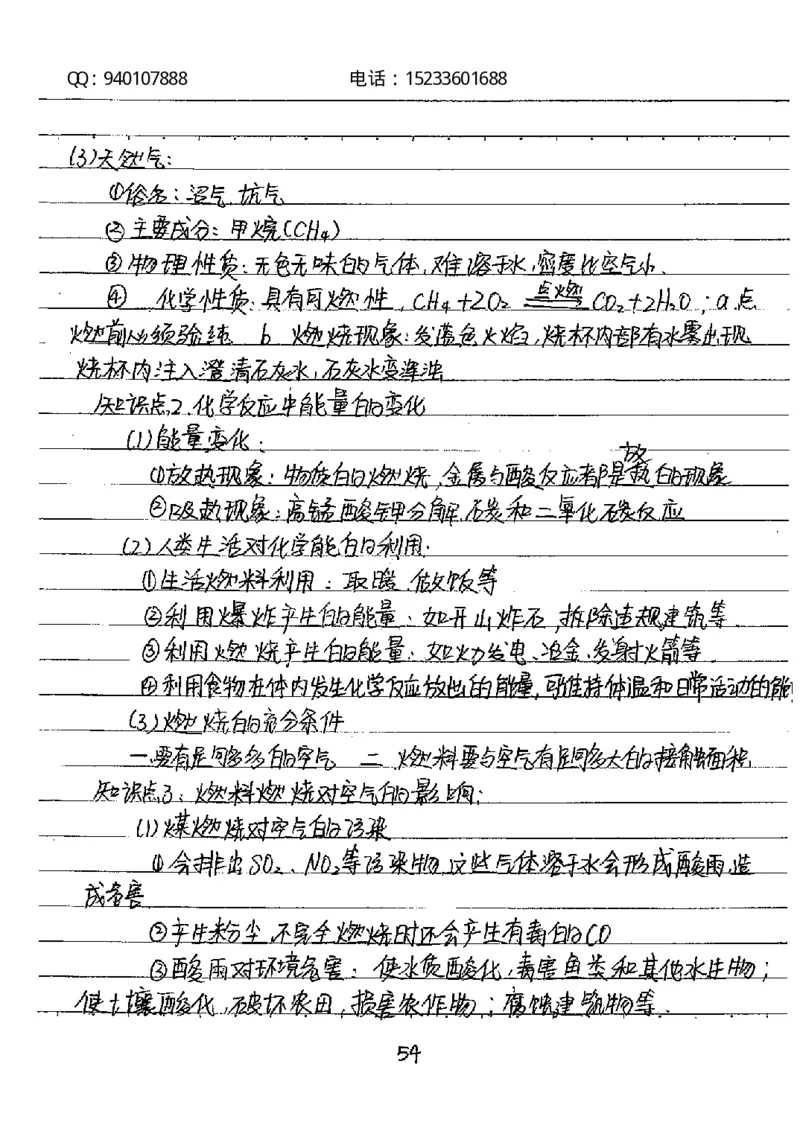 QQ：940107888 电话：15233601688
(3)天然气：
①俗名：沼气、坑气
②主要成分：甲烷(CH₄)
③物理性质：无色无味的气体,难溶于水,密度比空气小.
④ 化学性质：具有可燃性, CH₄+2O₂ 点燃 CO₂+2H₂O ; a 点
燃前必须验纯 b 燃烧现象：发蓝色火焰,烧杯内部有水雾出现
烧杯内注入澄清石灰水,石灰水变浑浊
知识点2.化学反应中能量的变化
(1)能量变化：
①放热现象：物质的燃烧,金属与酸反应都是放热的现象
②吸热现象：高锰酸钾分解.石炭和二氧化碳反应
(2)人类生活对化学能的利用.
①生活燃料利用：取暖 做饭等
②利用爆炸产生的能量：如开山炸石,拆除违规建筑等.
③利用燃烧产生的能量：如火力发电、冶金、发射火箭等.
④利用食物在体内发生化学反应放出的能量,可维持体温和日常活动的能
(3)燃烧的充分条件
一要有足够多的空气 二 燃料要与空气有足够大的接触面积.
知识点3：燃料燃烧对空气的影响：
(1)煤燃烧对空气的污染
①会排出SO₂、NO₂等污染物.这些气体溶于水会形成酸雨,造
成危害
②产生粉尘,不完全燃烧时还会产生有毒的CO
③酸雨对环境危害：使水质酸化,毒害鱼类和其他水生物；
使土壤酸化,破坏农田,损害农作物；腐蚀建筑物等.
54